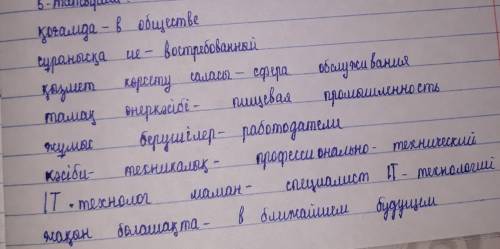 қоғамда - в обществе
сұранысқа ие - востребованный
қызмет көрсету саласы - сфера обслуживания
тамақ өнеркәсібі - пищевая промышленность
жұмыс берушілер - работодатели
кәсіби - техникалық - профессионально - технический
IT - технолог маман - специалист IT - технологий
жақын болашақта - в ближайшем будущем